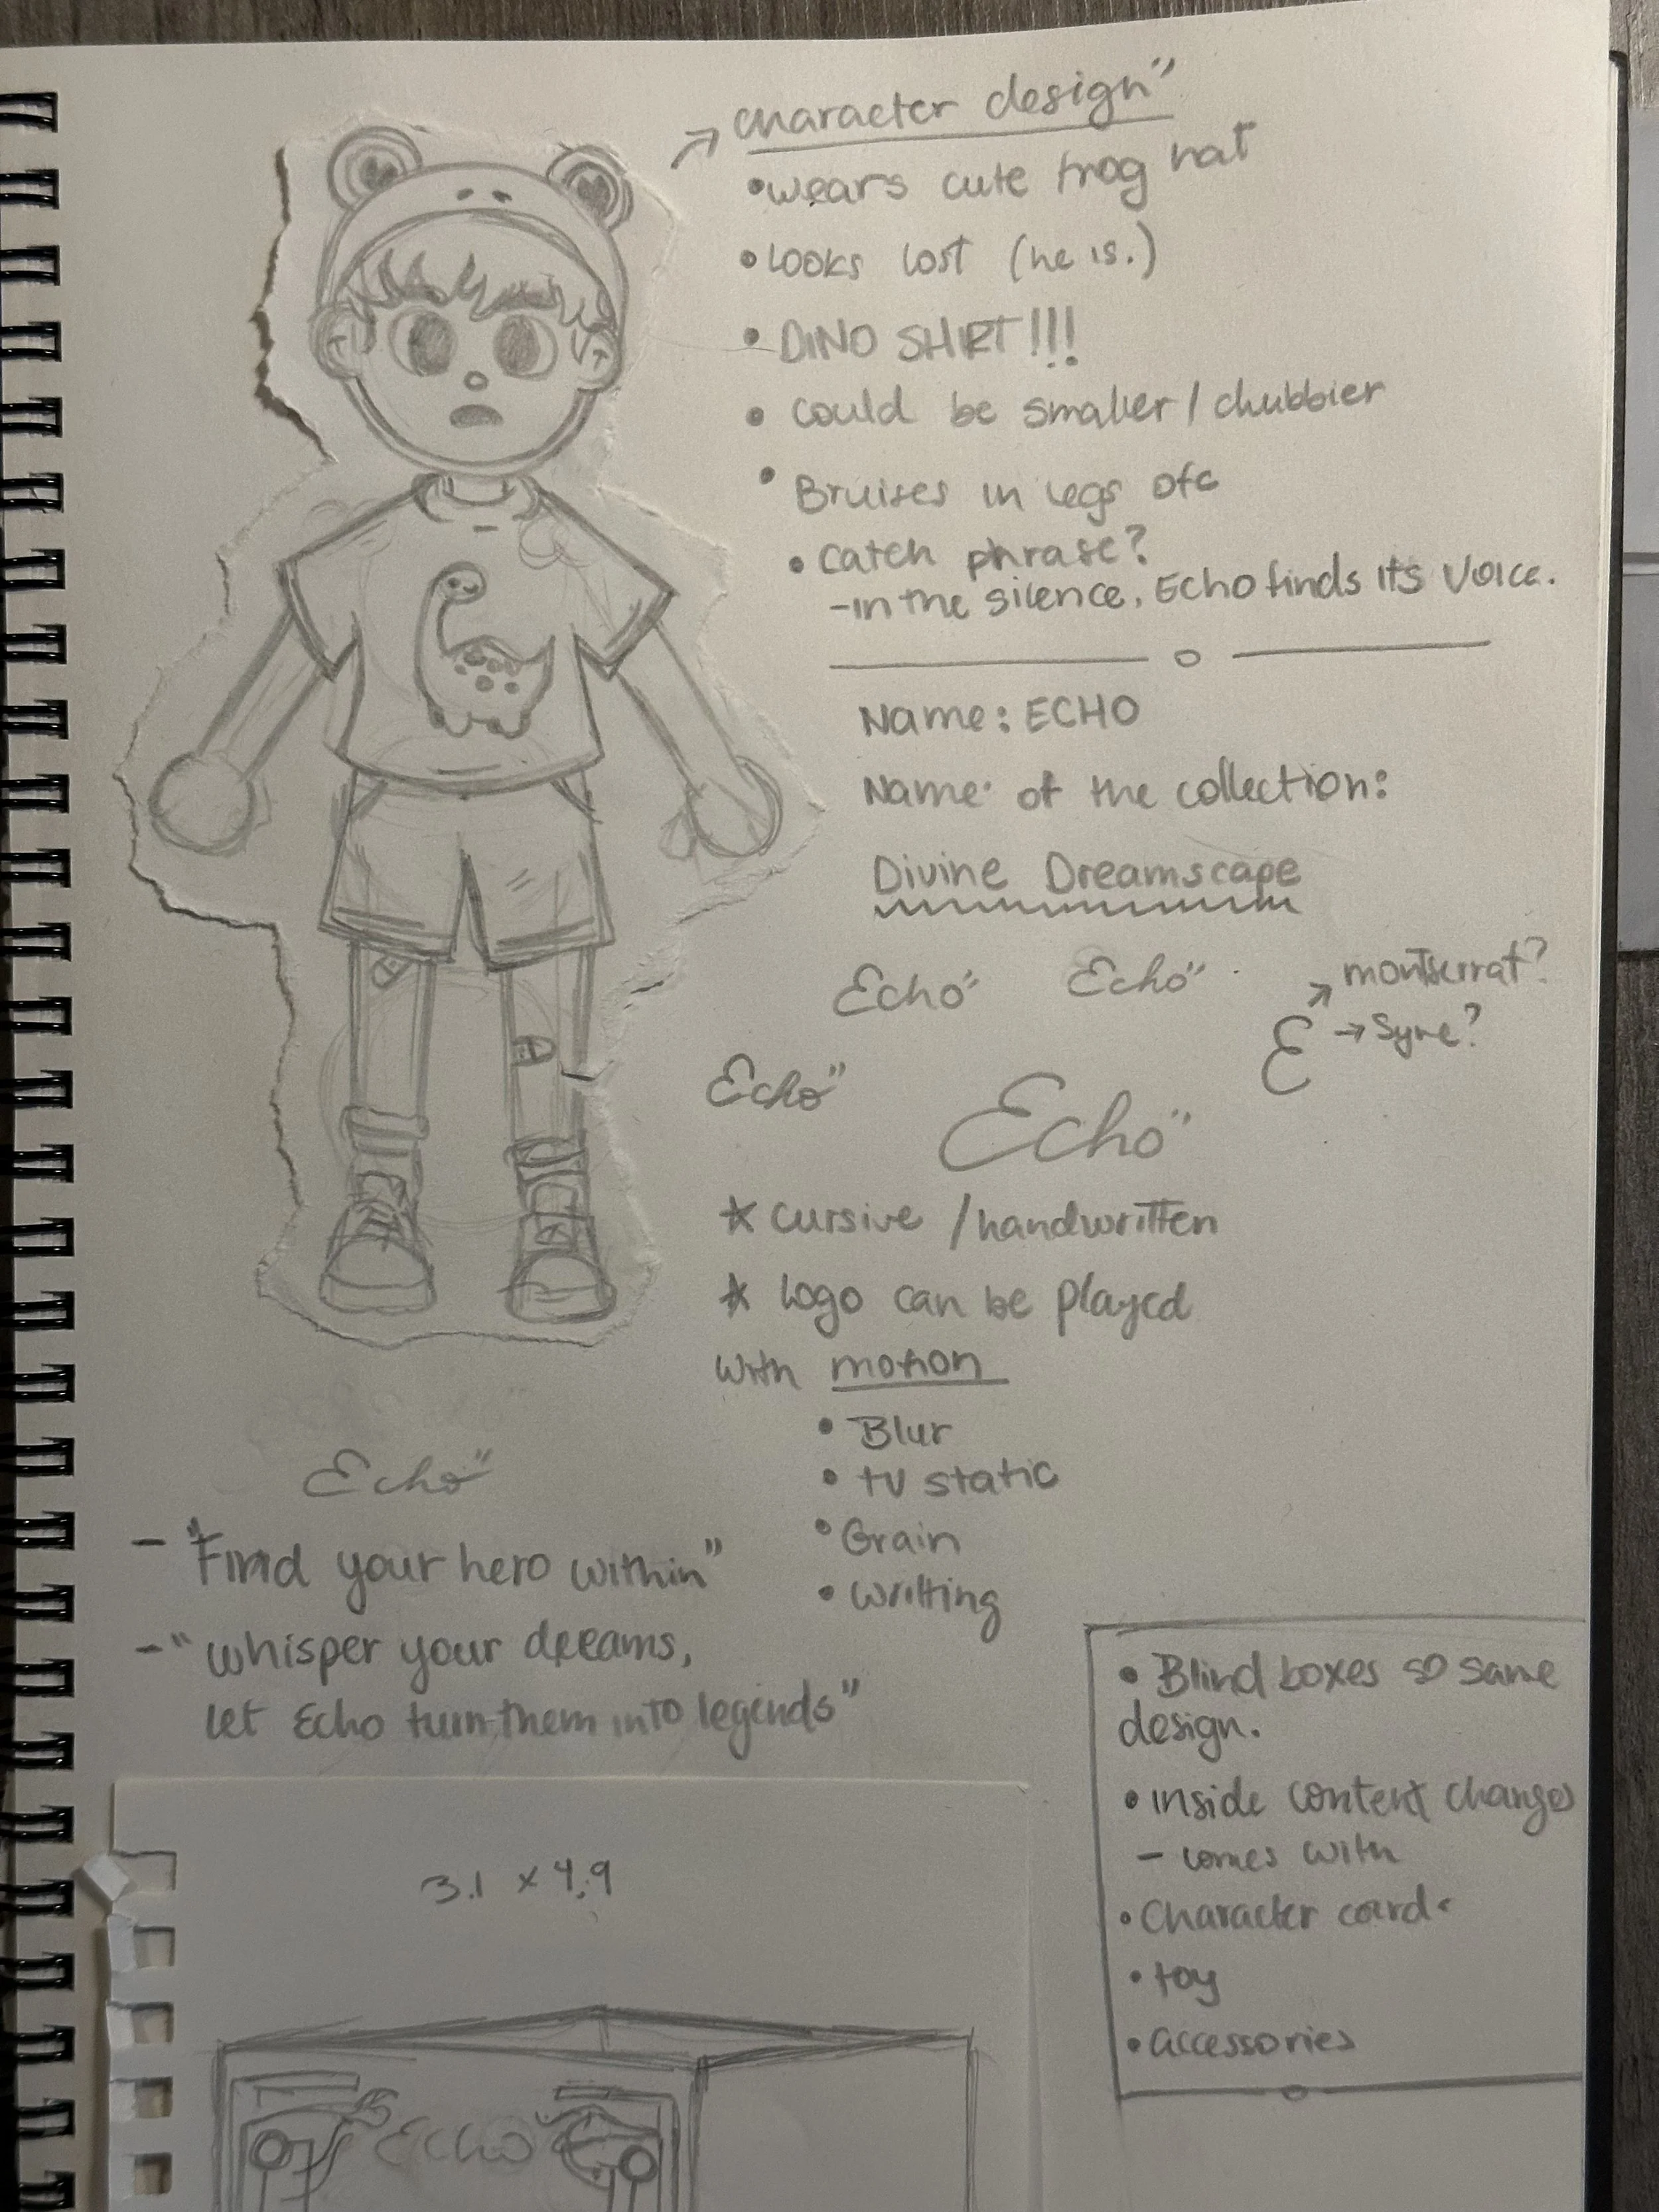 character design"
• wears cute frog hat
• Looks lost (he is.)
• DINO SHIRT!!!
• could be smaller / chubbier
• Bruises in legs
• catch phrase?
- in the silence, Echo finds its voice.
Name: ECHO
Name of the collection:
Divine Dreamscape
Echo" Echo"
montserrat?
E → Syne?
Echo"
Echo"
* cursive / handwritten
* logo can be played
with motion
• Blur
• tv static
• Grain
• writting
Echo"
- "Find your hero within"
- "whisper your dreams,
let Echo turn them into legends"
• Blind boxes so same
design.
• inside content changes
- comes with
• Character card
• toy
• accessories
3.1 x 4.9
Echo